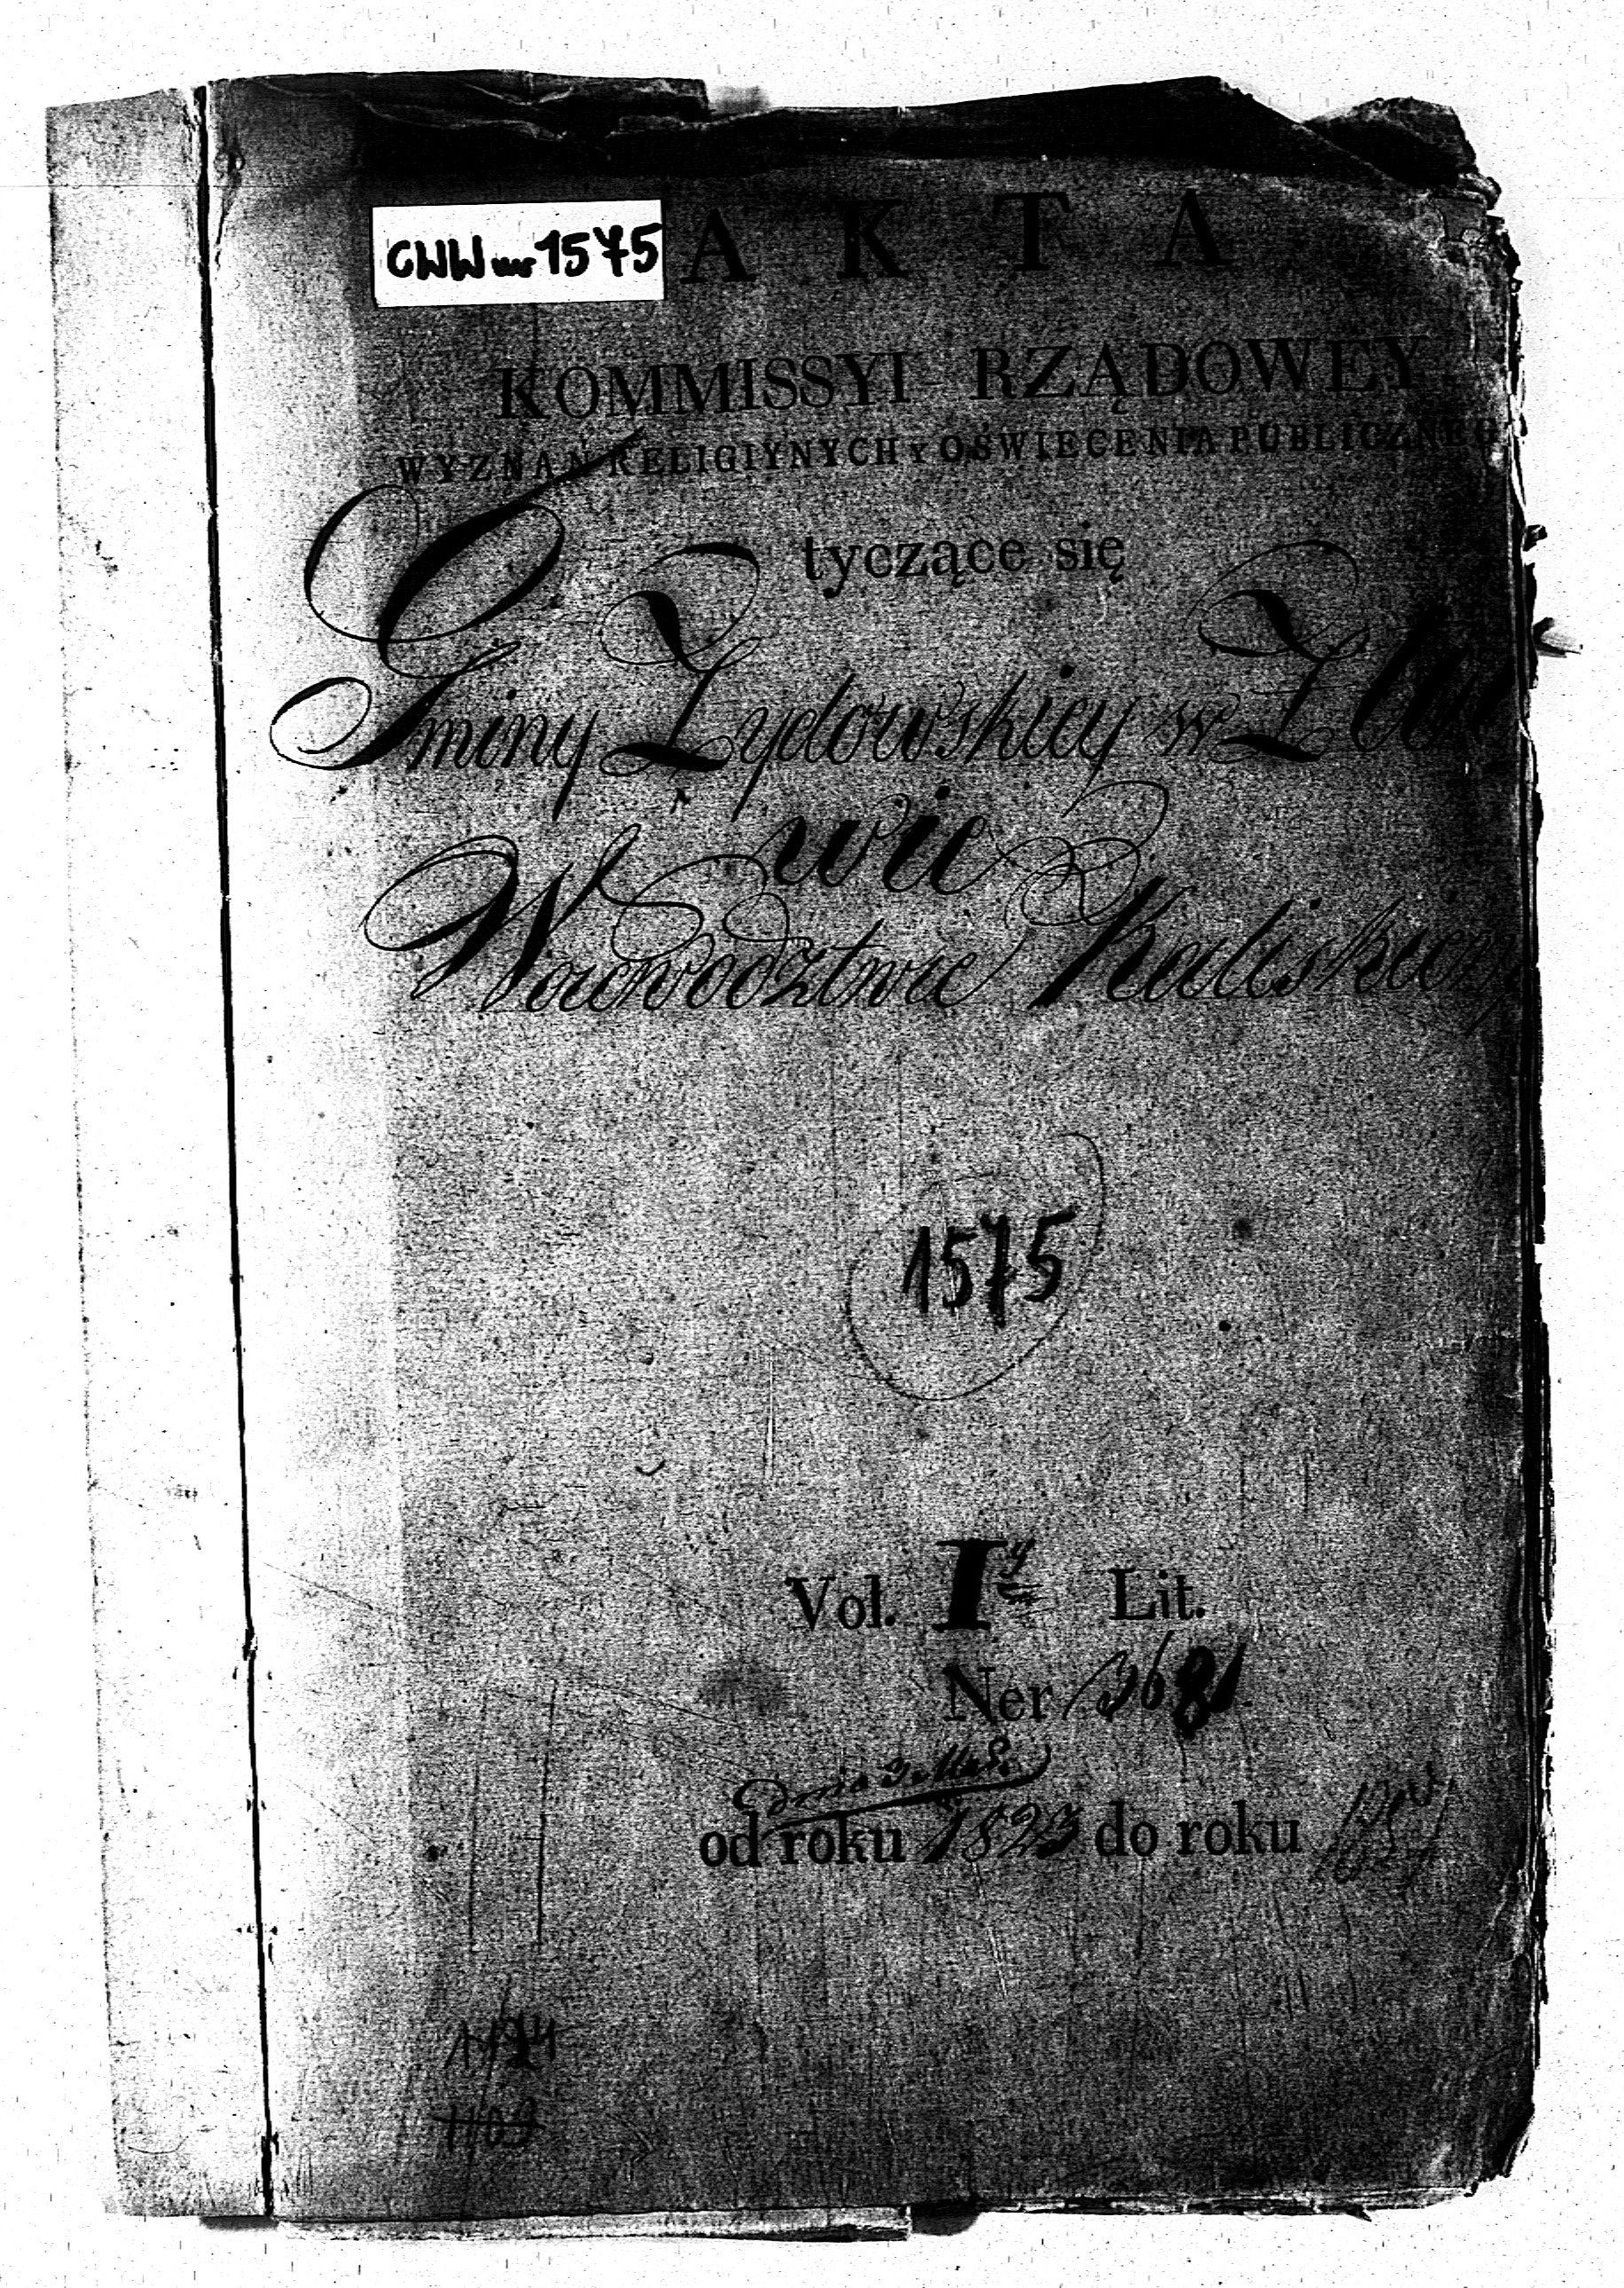 CWW nr 1575
AKTA
KOMMISSYI RZĄDOWEY
WYZNAŃ RELIGIYNYCH Y OŚWIECENIA PUBLICZNEGO
tyczące się
Gminy Żydowskiey w
wie
Woiewodztwie Kaliskiem
1575
Vol. I Lit.
Ner
od roku 1823 do roku
1103